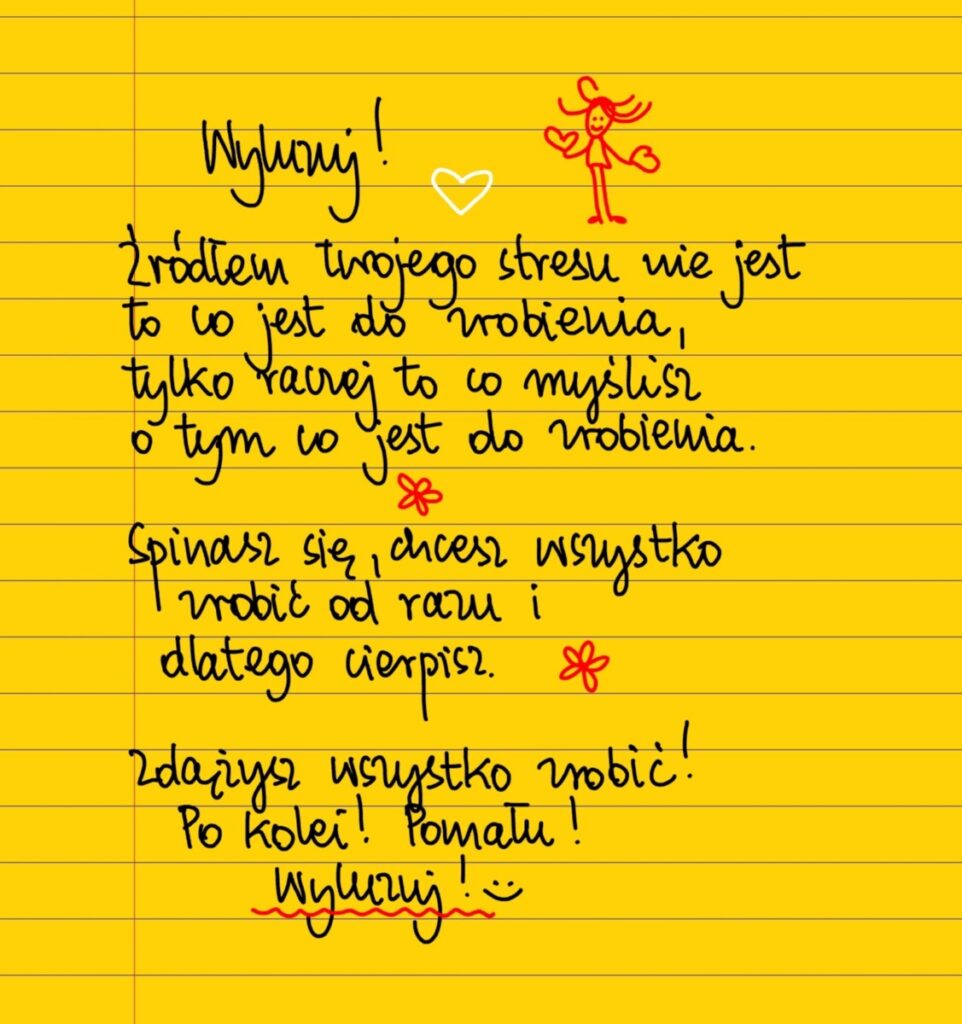 Wyluzuj!
Źródłem twojego stresu nie jest
to co jest do zrobienia,
tylko raczej to co myślisz
o tym co jest do zrobienia.
Spinasz się, chcesz wszystko
zrobić od razu i
dlatego cierpisz.
Zdążysz wszystko zrobić!
Po kolei! Pomału!
Wyluzuj! :)